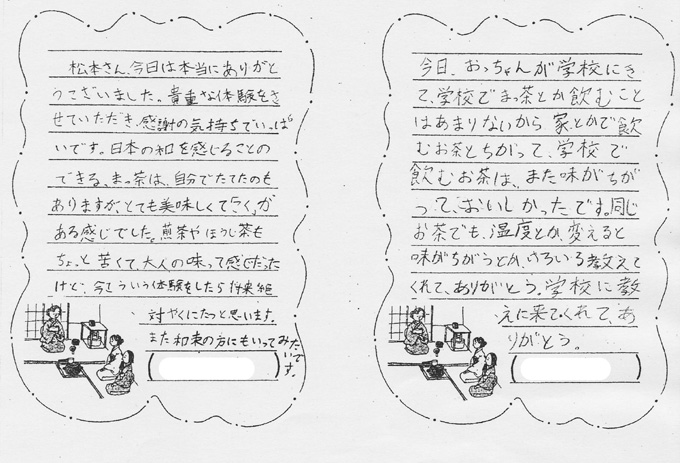 松本さん、今日は本当にありがと
うございました。貴重な体験をさ
せていただき、感謝の気持ちでいっぱ
いです。日本の和を感じることの
できる、まっ茶は、自分でたてたのも
ありますが、とても美味しくて「こく」が
ある感じでした。煎茶やほうじ茶も
ちょっと苦くて、大人の味って感じだった
けど、今こういう体験をしたら将来絶
対やくにたつと思います。
また和束の方にもいってみたいです。
今日、おっちゃんが学校にき
て、学校でまっ茶とか飲むこと
はあまりないから家とかで飲
むお茶とちがって、学校で
飲むお茶は、また味がちが
って、おいしかったです。同じ
お茶でも、温度とか、変えると
味がちがうとか、いろいろ教えて
くれて、ありがとう。学校に教
えに来てくれて、あ
りがとう。